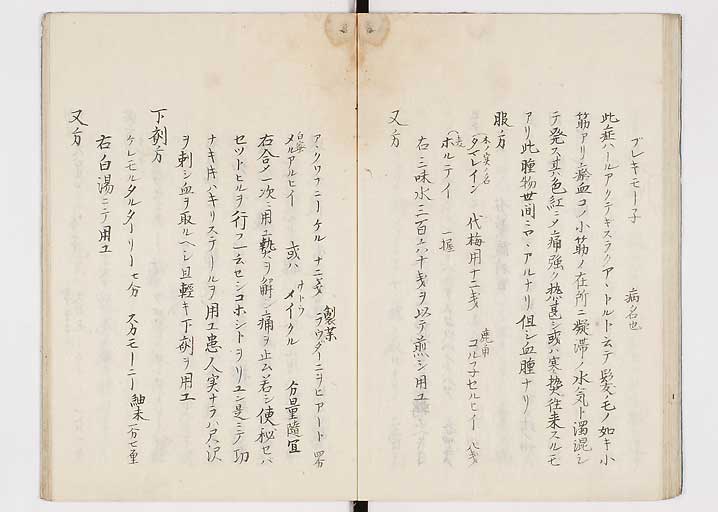 フレキモー子　病名也
此症ハールアクデキスラクア、トルト云テ髪ノモノ如キ小
筋アリ瘀血コノ小筋ノ在所ニ凝滞ノ水気ト濁混シ
テ発ス其色紅ニメ痛強ク熱甚シ或ハ寒熱往来スルモ
アリ此腫物世間ニマ、アルナリ但シ血腫ナリ
服方
木ノ実ノ名
タマレイン　代梅用十二戔　鹿角　コル子セルヒイ　八戔
ホルテイ　一握
右三味水三百六十戔ヲ以テ煎シ用ユ
又方
製薬
ア、クワフニーケル　十二戔　ラウダーニヲヒアート　四分
メルアルヒイ　或ハ　メイクル　分量随宜
右合ノ一次ニ用ユ熱ヲ解シ痛ヲ止ム若シ便秘セハ
セツトヒルヲ行フ
ナキ片ハキリステールヲ用ユ患人実ナラハ尺沢
ヲ刺シ血ヲ取ルヘシ且軽キ下剤ヲ用ユ
下剤方
ケレモルタルターリー　七分　スカモーニー　細末
右白湯ニテ用ユ
又方